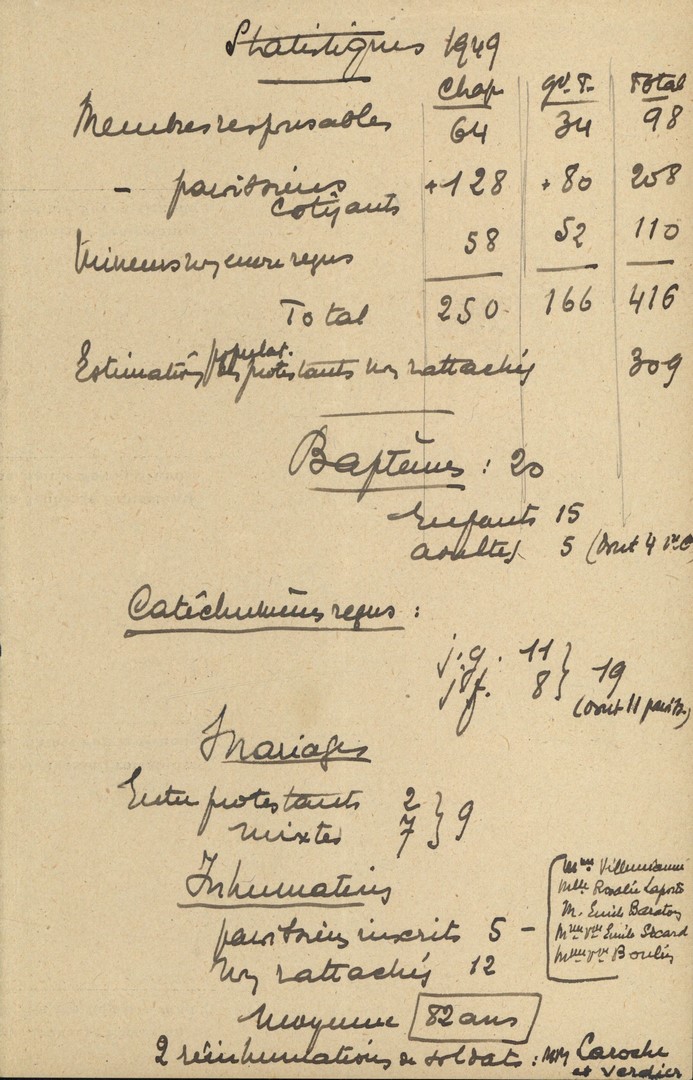 Statistiques 1949
Chap. gr. T. Total
Membres responsables 64 34 98
- paroissiens +128 +80 208
cotisants
Mineurs non encore reçus 58 52 110
Total 250 166 416
populat.
Estimation des protestants non rattachés 309
Baptêmes : 20
Enfants 15
adultes 5 (dont 4
Catéchumènes reçus :
j.g. 11 } 19
j.f. 8 }
(dont 11 paroiss.)
Mariages
Entre protestants 2 } 9
mixtes 7 }
Inhumations
paroissiens inscrits 5 -
Mme
Mlle Rosalie Laporte
M. Emile Baraton
Mme Vve Emile Sicard
Mme Vve
Non rattachés 12
Moyenne 82 ans
2 réinhumations de soldats : MM Caroche
et Verdier